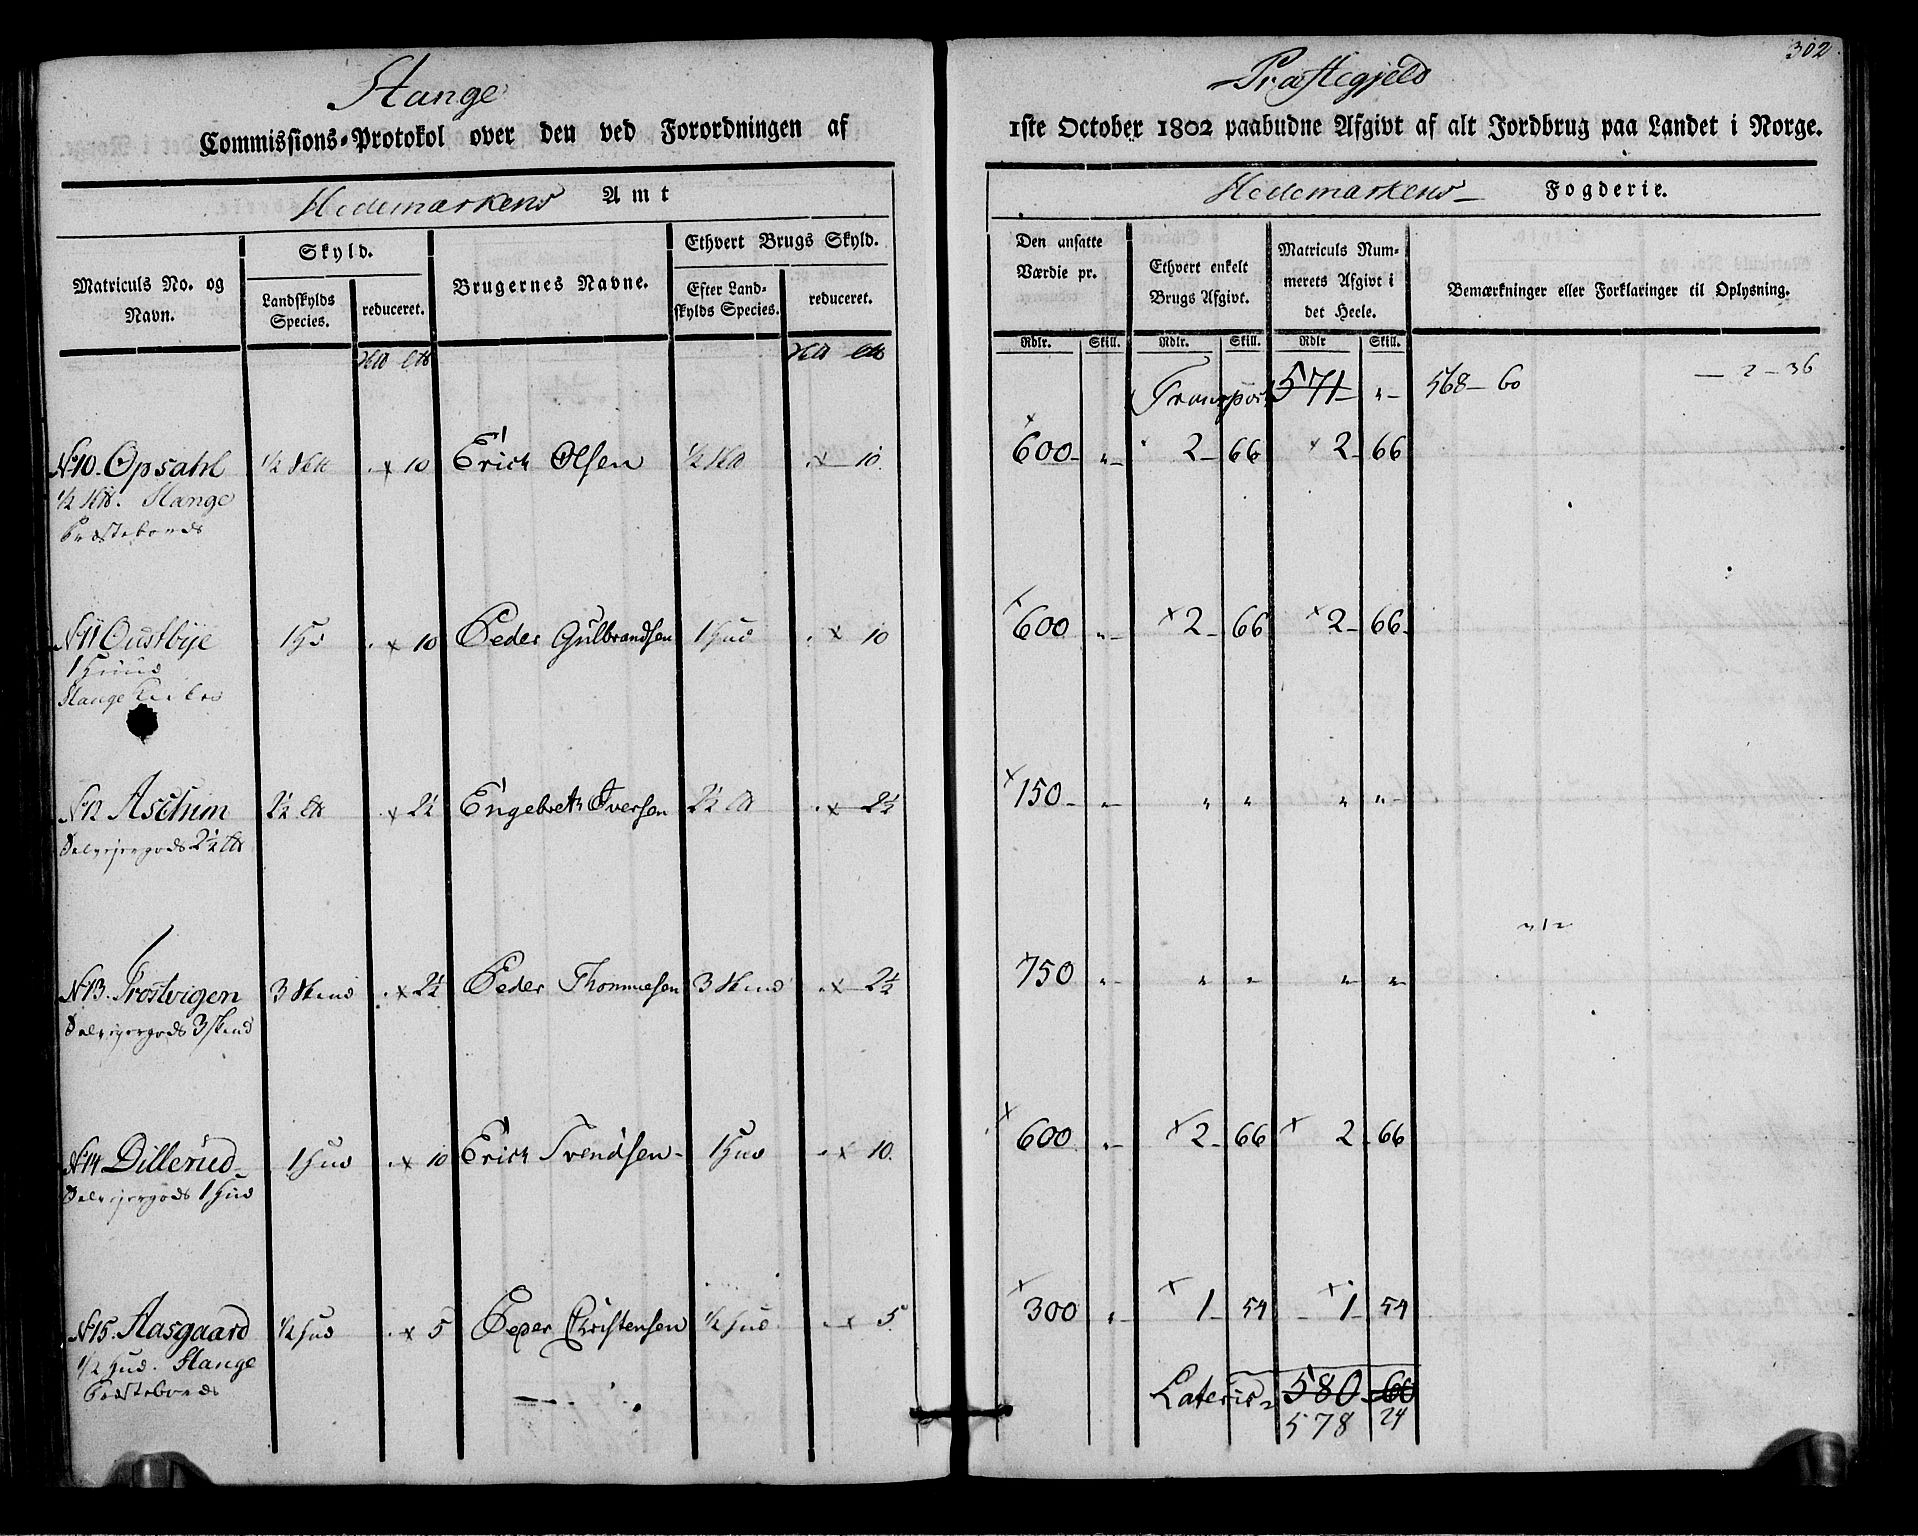 302
Stange Præstegjeld
Commissions-Protokol over den ved Forordningen af 1ste October 1802 paabudne Afgivt af alt Jordbrug paa Landet i Norge.
Hedemarkens Amt
Hedemarkens Fogderie.
Matriculs No. og Navn.
Skyld.
Landskylds Species.
reduceret.
Brugernes Navne.
Ethvert Brugs Skyld.
Efter Landskylds Species.
reduceret.
Den ansatte Værdie pr.
Ethvert enkelt Brugs Afgivt.
Matriculs Nummerets Afgivt i det Heele.
Bemærkninger eller Forklaringer til Oplysning.
Rdlr. Skill. Rdlr. Skill. Rdlr Skill.
Transport 571 " 568 - 60 - 2 - 36
No 10. Opsahl ½ x 10 Erich Olsen ½ x 10 600 " 2 66 2 66
½ Stange
Præstebords
No 11 Oustbye 1 x 10 Peder Gulbrandsen 1 Hud x 10 600 " 2 66 2 66
1 Huud
Stange
No 12 Aschim 2½ x 2½ Engebret Iversen 2½ x 2½ 150 " " " " "
2½
No 13. Frostvigen 3 Skind x 2½ Peder Thommesen 3 Skind x 2½ 750 " " " " "
3 Skind
No 14 Dillerud 1 Hud x 10 Erich Svendsen 1 Hud x 10 600 " 2 66 2 66
1 Hud
No 15. Aasgaard ½ Hud x 5 Peder Christensen ½ Hud x 5 300 " 1 54 1 54
½ Hud. Stange
Præstebords
Lateris 580 60
578 24